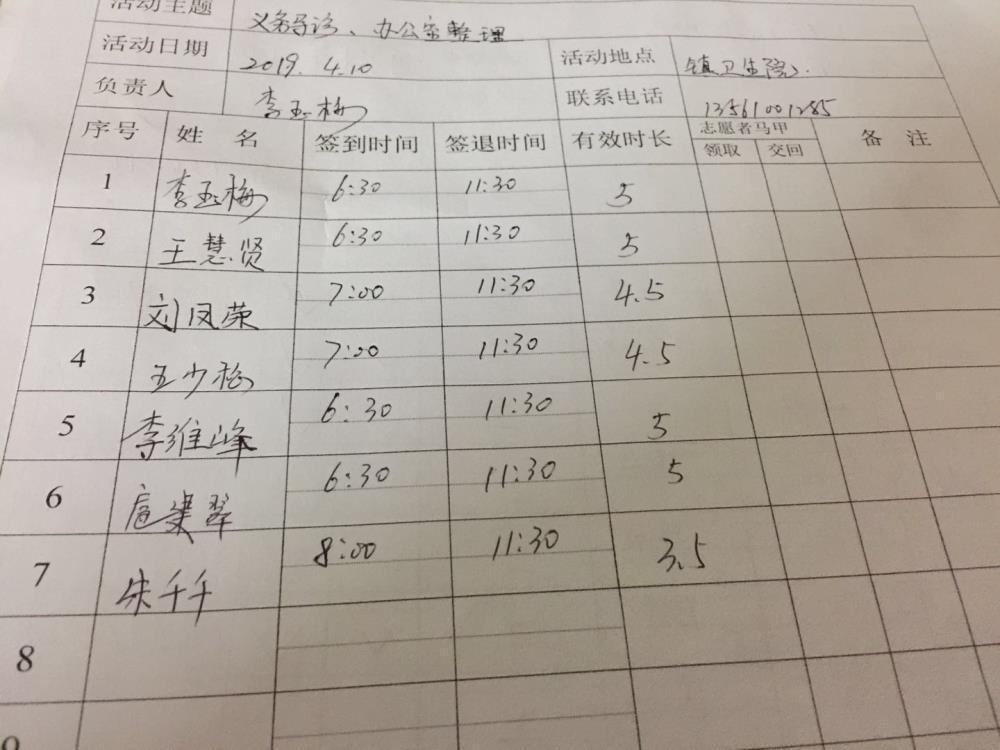 活动主题 义务导诊、办公室整理
活动日期 2019.4.10 活动地点 镇卫生院
负责人 李玉梅 联系电话 13561001285
序号 姓 名 签到时间 签退时间 有效时长 志愿者马甲 备 注
领取 交回
1 李玉梅 6:30 11:30 5
2 王慧贤 6:30 11:30 5
3 刘凤荣 7:00 11:30 4.5
4 王少梅 7:00 11:30 4.5
5 李维峰 6:30 11:30 5
6 6:30 11:30 5
7 朱千千 8:00 11:30 3.5
8
9